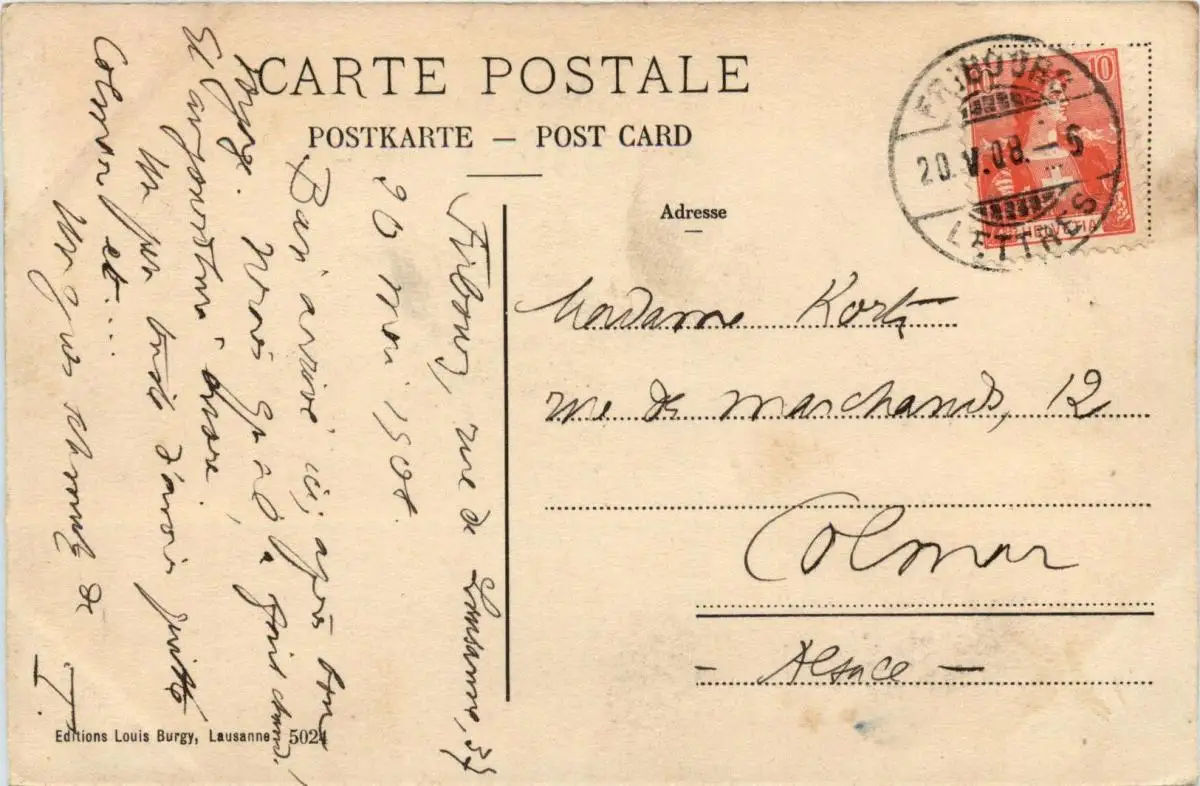 CARTE POSTALE
POSTKARTE — POST CARD
Adresse
FRIBOURG
20.V.08.–6
LETTRES
10
HELVETIA
Madame Kortz
rue des marchands, 12
Colmar
- Alsace -
Fribourg, rue de Lausanne, 37
20 Mai 1908.
Bien arrivé ici, après bon
voyage. Wars
Et aujourd'hui
Un peu triste d'avoir quitté
Colmar et...
de
T.
Editions Louis Burgy, Lausanne 5024